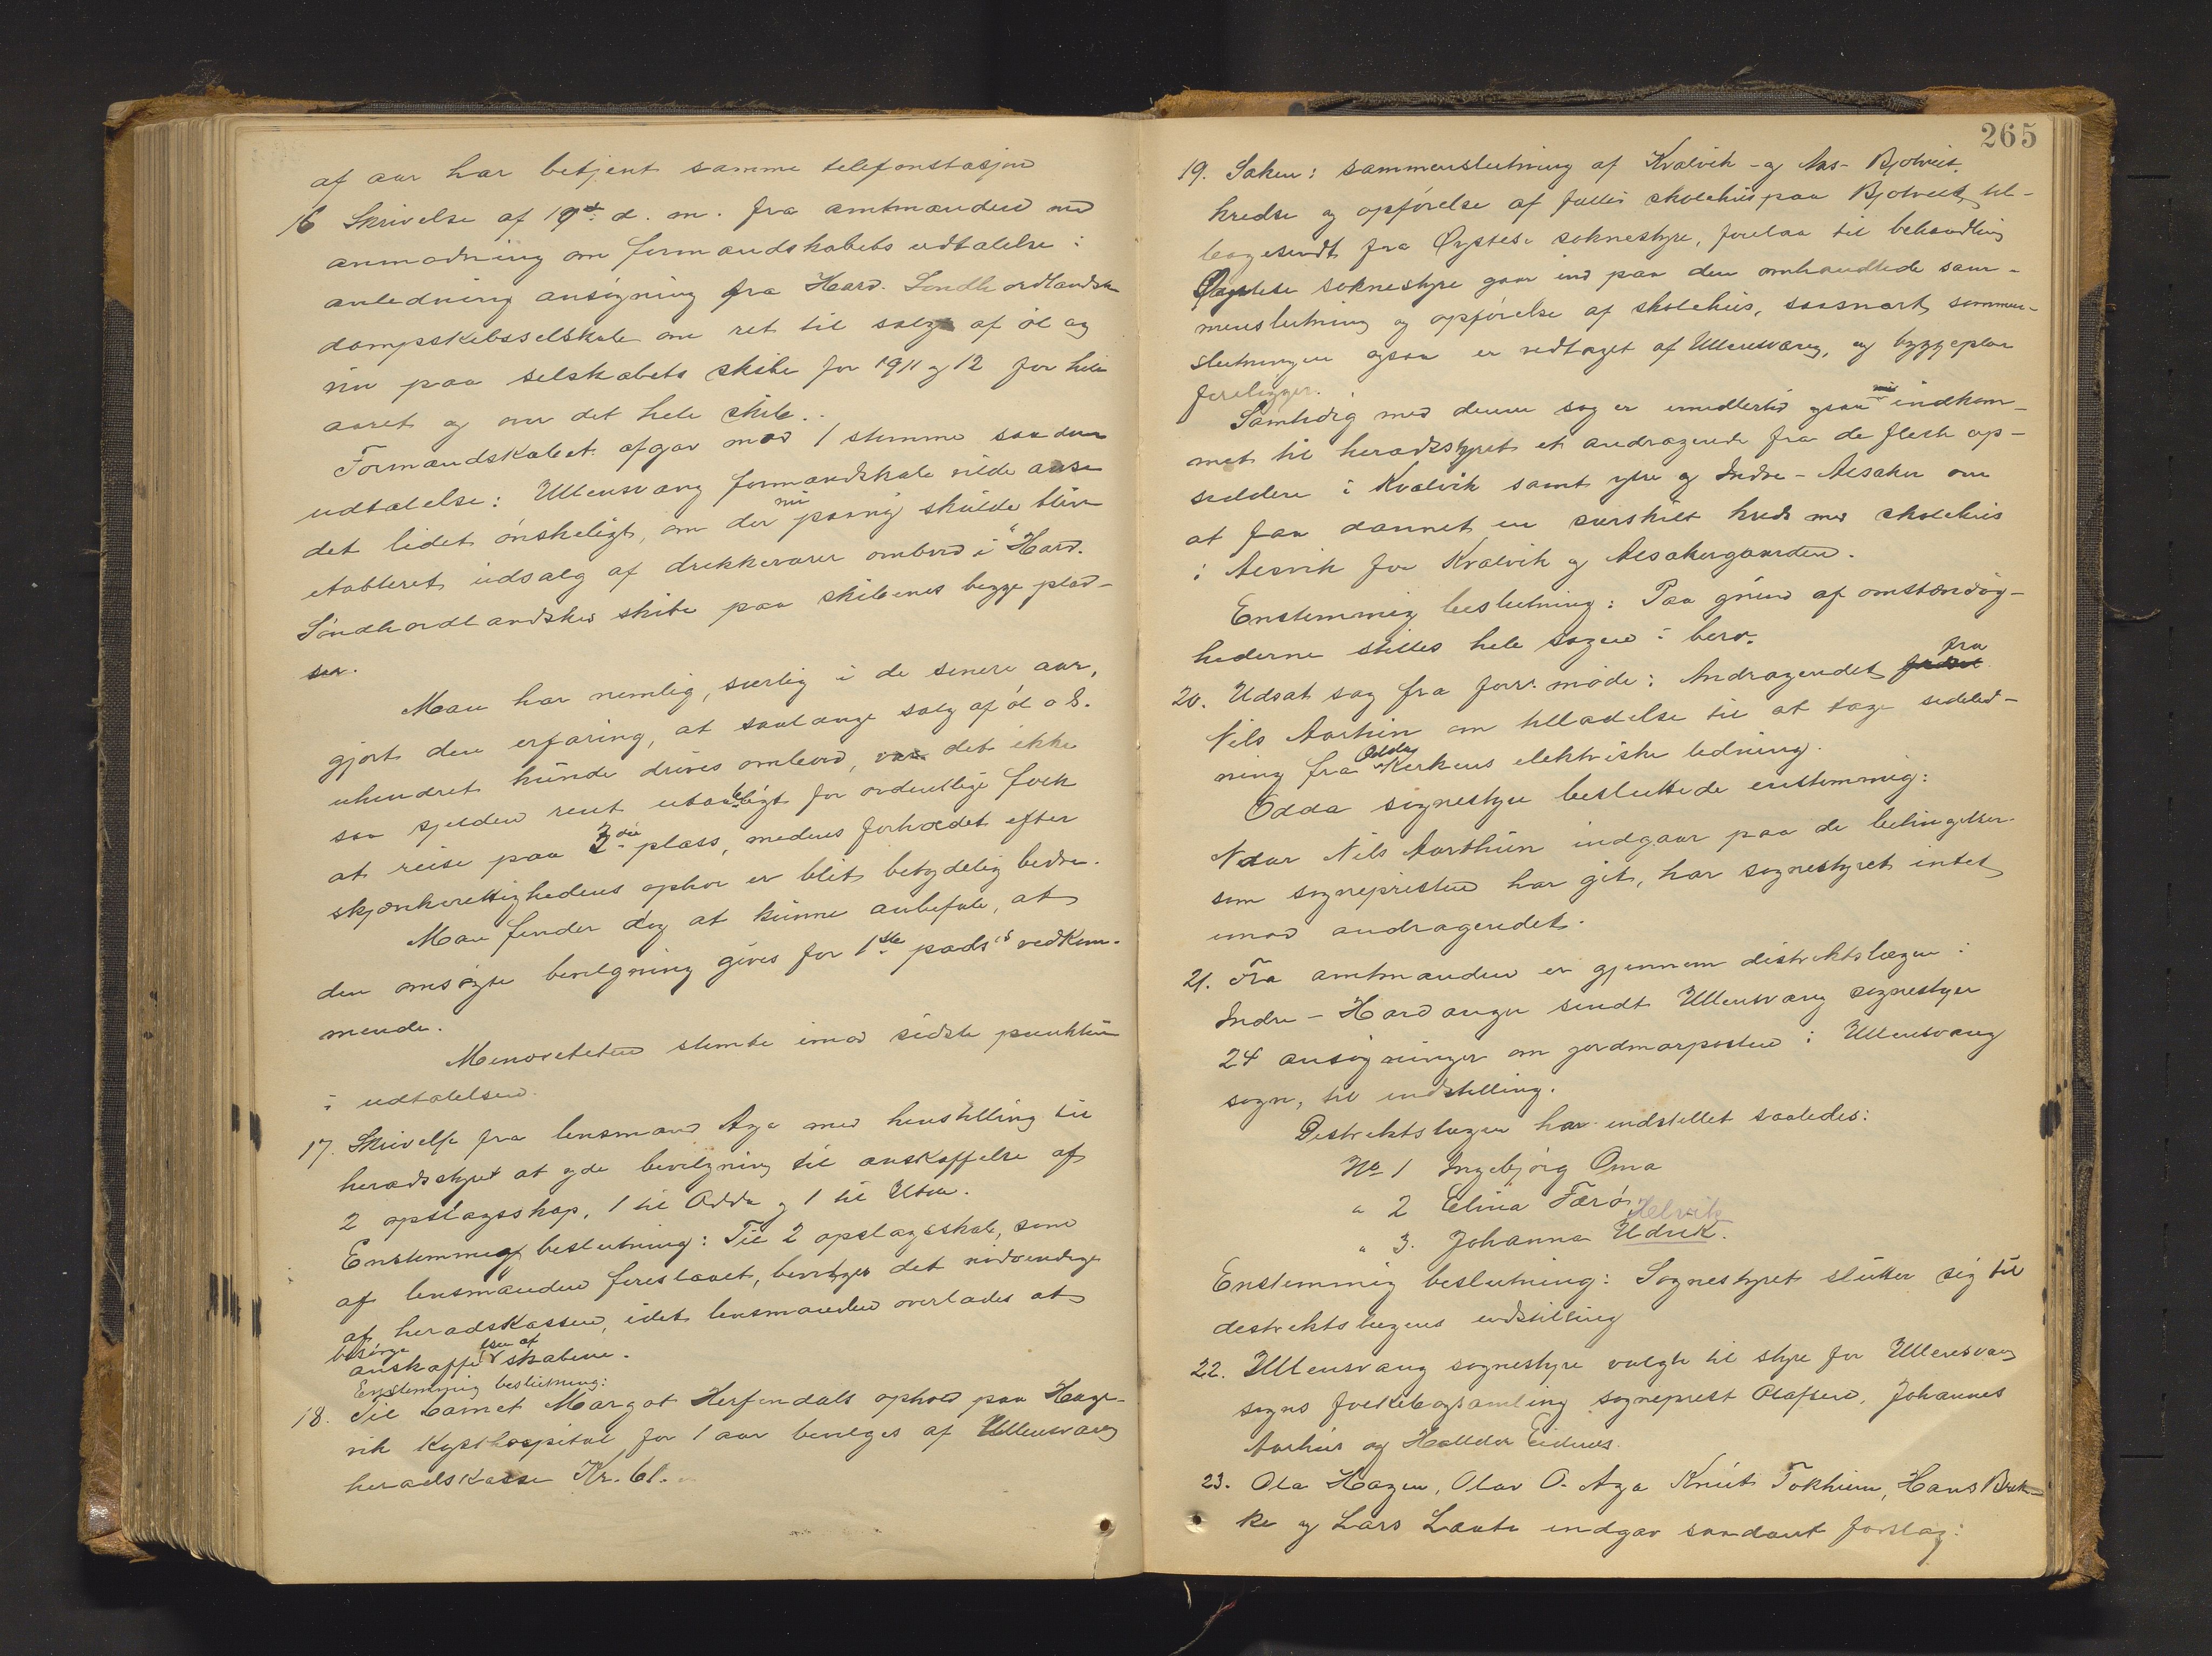 af aar har betjent samme telefonstasjon
16 Skrivelse af 19de d. m. fra amtmanden med
anmodning om formandskabets udtalelse i
anledning ansøgning fra Hard. Søndhordlandske
dampskibsselskab om ret til salg af øl og
vin paa selskabets skibe for 1911 og 12 for hele
aaret og over det hele skib.
Formandskabet afgav mod 1 stemme saadan
udtalelse: Ullensvang formandskab vilde anse
det lidet ønskeligt, om der nu paany skulde blive
etableret udsalg af drikkevarer ombord i "Hard.
Søndhordlandskes skibe paa skibenes begge plad-
ser.
Man har nemlig, særlig i de senere aar,
gjort den erfaring, at saalænge salg af øl o. s.
uhindret kunde drives ombord, var det ikke
saa sjelden rent utaaleligt for ordentlige folk
at reise paa 3die plass, medens forholdet efter
skjænkerettighedens ophør er blit betydelig bedre.
Man finder dog at kunne anbefale, at
den omsøgte bevilgning gives for 1ste plads's vedkom-
mende.
Minoriteten stemte imod sidste punktum
i udtalelsen.
17. Skrivelse fra lensmand Aga med henstilling til
heradsstyret at yde bevilgning til anskaffelse af
2 opslagsskap, 1 til Odda og 1 til Utne.
Enstemmig beslutning: Til 2 opslagsskab, som
af lensmanden foreslaaet, bevilges det nødvendige
af heradskassen, idet lensmanden overlades at
besørge lsen af
anskaffe skabene.
Enstemmig beslutning:
18. Til barnet Margot Herfindals ophold paa Hauge-
vik Kysthospital for 1 aar bevilges af Ullensvang
heradskasse Kr. 61.
265
19. Saken: sammenslutning af Kvalvik- og Aas- Bjotveit
kredse og opførelse af fælles skolehus paa Bjotveit, til-
bagesendt fra Øystese soknestyre, forelaa til behandling
Øystese soknestyre gaar ind paa den omhandlede sam-
menslutning og opførelse af skolehus, saasnart sammen-
slutningen ogsaa er vedtaget af Ullensvang, og byggeplan
foreligger.
Samtidig med denne sag er imidlertid ogsaa nu indkom-
met til heradsstyret et andragende fra de fleste op-
siddere i Kvalvik samt ytre og Indre-Alsaker om
at faa dannet en særskilt kreds med skolehus
i Alsvik for Kvalvik og Alsakergaardene.
Enstemmig beslutning: Paa grund af omstændig-
hederne stilles hele sagen i bero.
20. Udsat sag fra forr. møde: Andragendet fra
Nils Aarthun om tilladelse til at tage sideled-
ning fra Odda Kirkens elektriske ledning.
Odda sognestyre besluttede enstemmig:
Naar Nils Aarthun indgaar paa de betingelser
som sognepresten har git, har sognestyret intet
imod andragendet.
21. Fra amtmanden er gjennem distriktslægen i
Indre-Hardanger sendt Ullensvang sognestyre
24 ansøgninger om jordmorposten i Ullensvang
sogn, til indstilling.
Distriktslægen har indstillet saaledes:
No 1 Ingebjørg Oma
" 2 Elina Færø,
Helvik
" 3. Johanna Udvik.
Enstemmig beslutning: Sognestyret slutter sig til
distriktslægens indstilling
22. Ullensvang sognestyre valgte til styre for Ullensvang
sogns folkebogsamling sogneprest Olafsen, Johannes
Aarhus og Halldor Eidnes.
23. Ola Hagen, Olav O. Aga Knut Tokheim, Hans Brek-
ke og Lars Laate indgav saadant forslag: